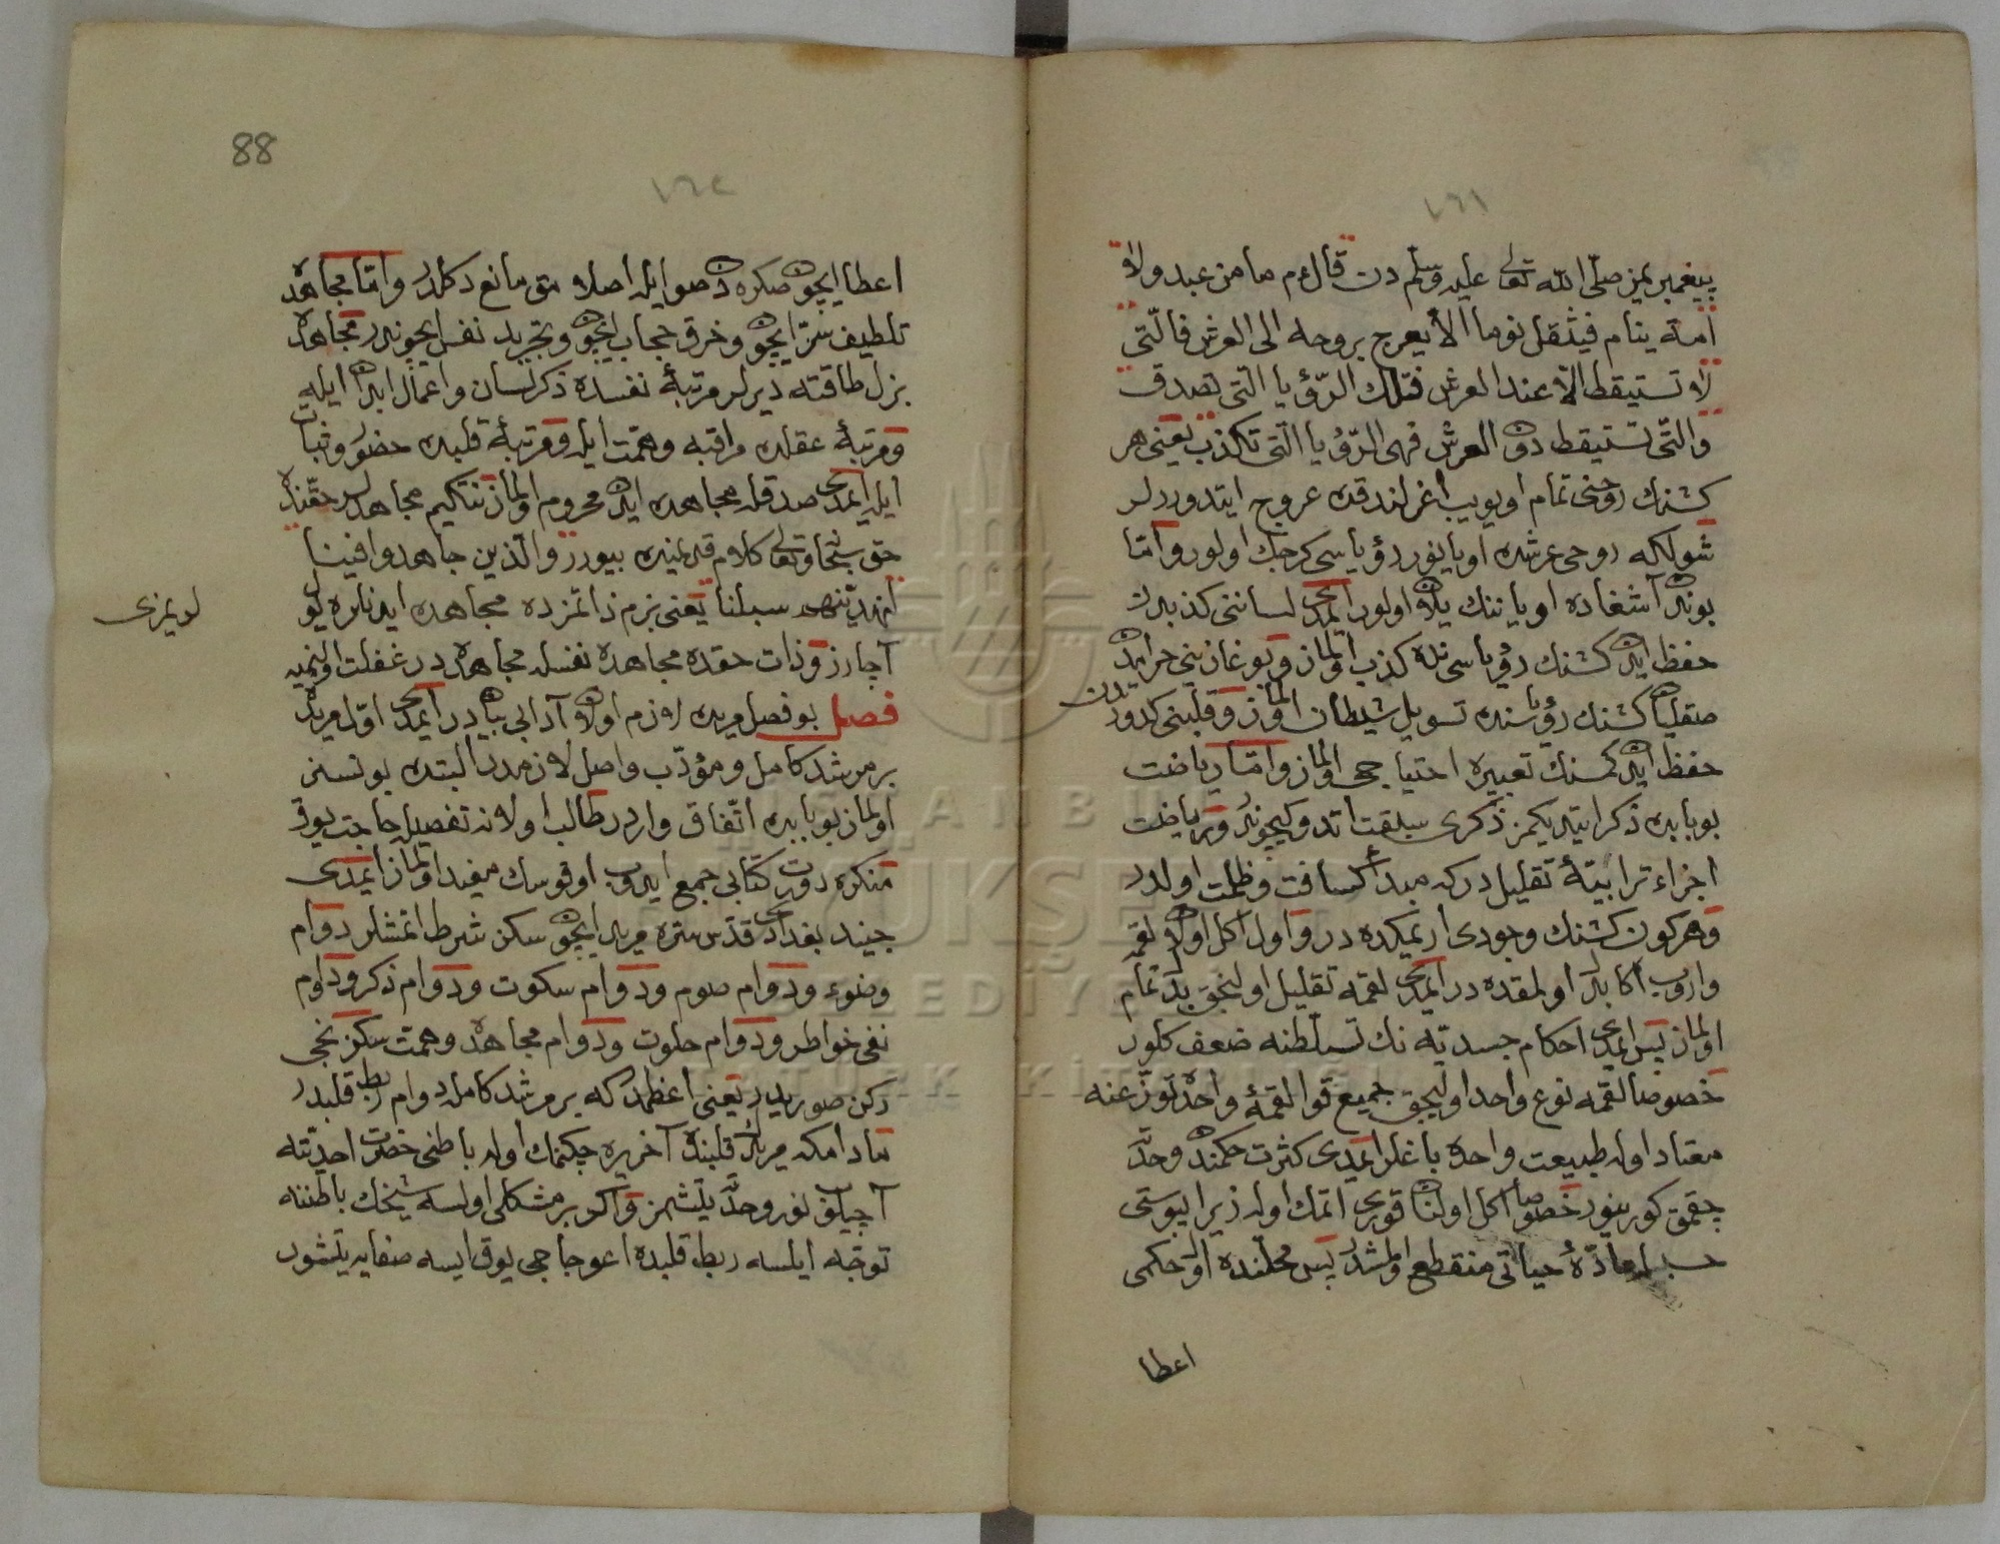 پيغمبريمز صلّى اللّه تعالى عليه وسلّم دن قال عم ما من عبد ولا
امة ينام فيثقل نوما الا يعرج بروحه الى العرش فالّتى
لا تستيقظ الّا عند العرش فتلك الرّؤيا الّتى تصدق
والتّى تستيقظ دون العرش فهى الرّؤيا الّتى تكذب يعنى هر
كشنك روحنى تمام اويويب اغرلندقده عروج ايتدوررلر
شولكه روحى عرشده اويانور رؤياسى كرچك اولور وامّا
بوندن آشغاده اويانّنك يلان اولور ايمدى لساننى كذبدن
حفظ ايدن كشنك رؤياسى كذب اولماز وبوغازينى حرامدن
صقلين كشنك رؤياسنده تسويل شيطان اولماز وقلبنى كدورتدن
حفظ ايدن كمسنك تعبيره احتياجى اولماز وامّا رياضت
بو بابده ذكر ايتديكمز ذكرى سبقت اتدوكيچوندر ورياضت
اجزاء ترابيّةٔ تقليلدركه مبدأ كسافت وظلمت اولدر
وهركون كشنك وجودى اريمكده در واول اكل اولان لقمه
واروب اكا بدل اولمقده در ايمدى لقمه تقليل اولنجق بدل تمام
اولماز پس ايمدى احكام جسديّه نك تسلّطنه ضعف كلور
خصوصا لقمه نوع واحد اوليجق جميع قوا لقمهٔ واحدك توزعنه
معتاد اولور طبيعت واحده باغلر ايمدى كثرت حكمندن وحدّت
چقمق كورينور خصوصا اكل اولنان قورى اتمك اوله زيرا يبوستى
حسبيله مادّهٔ حياتى منقطع اولمشدر پس محلّنده اول حكمى
اعطا
88
١٦٢
١٦١
اعطا ايچون صكره دن صو ايله اصلا متق مانع دكلدر وامّا مجاهده
تلطيف سرّ ايچون وخرق حجاب ايچون وتجريد نفس ايچوندر مجاهده
بزل طاقته ديرلر مرتبهٔ نفسده ذكر لسان واعمال ابدان ايله
ومرتبهٔ عقلده مراقبه وهمّت ايله ومرتبهٔ قلبده حضور وثبات
ايله ايمدى صدقله مجاهده ايدن محروم اولماز نتكيم مجاهدلر حقّنده
حق سبحانه وتعالى كلام قديمنده بيورر والّذين جاهدوا فينا
لنهدينّهم سبلنا يعنى بزم ذاتمزده مجاهده ايدنلره يول
آچارز وذات حقده مجاهده نفسله مجاهده در غفلت اولنميه
لويمزى
فصل بو فصل مريده لازم اولان آدابى بياندر ايمدى اوّل مريده
بر مرشد كامل ومؤدّب واصل لازمدر البته بونسز
اولماز بو بابده اتّفاق واردر طالب اولانه تفصيل حاجت يوق
منكره دورت كتابى جمع ايدوب اوقوسك مفيد اولماز ايمدى
جنيد بغدادى قدّس سرّه مريد ايچون سكز شرط اتمشلر دوام
وضوء ودوام صوم ودوام سكوت ودوام ذكر ودوام
نفى خواطر ودوام خلوت ودوام مجاهده وهمّت سكزنجى
ركن صوريدر يعنى اعظمدركه بر مرشد كامله دوام ربط قلبدر
مادامكه مريدك قلبنده آخر يره چكنمك اوله باطنى حضرت احديّته
آچيلوب نور وحدّت يتشمز واكر بر مشكلى اولسه شيخك باطننه
توجّه ايلسه ربط قلبده اعوجاجى يوق ايسه صفايه يتشور